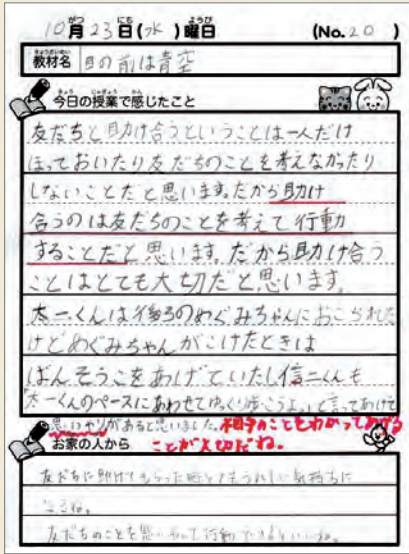 10月23日(水)曜日 (No.20)
教材名 目の前は青空
今日の授業で感じたこと
友だちと助け合うということは一人だけ
ほっておいたり友だちのことを考えなかったり
しないことだと思います。だから助け
合うのは友だちのことを考えて行動
することだと思います。だから助け合う
ことはとても大切だと思います。
太一くんは後ろのめぐみちゃんにおこられた
けどめぐみちゃんがこけたときは
ばんそうこをあげていたし信二くんも
「太一くんのペースにあわせてゆっくり歩こうよ」と言ってあげて
思いやりがあると思いました。相手のこともわかってあげる
ことが大切だね。
お家の人から
友だちに助けてもらった時とてもうれしい気持ちに
なるね。
友だちのことを思いやって行動できるといいね。